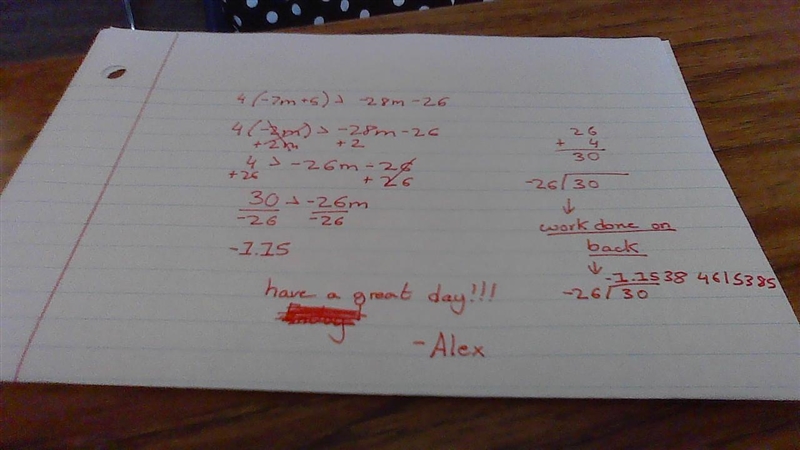 4(-7m+5) > -28m-26
4(-2m) > -28m-26
+2m +2
4 > -26m-26
+26 +26
30 > -26m
-26 -26
-1.15
have a great day!!!
-Alex
26
+ 4
30
-26/30
↓
work done on
back
↓
-1.1538 4615385
-26/30